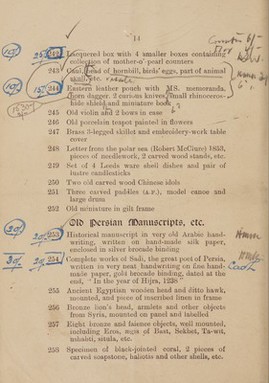 14
242 Lacquered box with 4 smaller boxes containing
collection of mother-o'-pearl counters
243 head of hornbill, birds' eggs, part of animal
skull, etc.
244 Eastern leather pouch with MS. memoranda,
horn dagger, 2 curious knives, small rhinoceros-
hide shield and miniature book
245 Old violin and 2 bows in case
246 Old porcelain teapot painted in flowers
247 Brass 3-legged skillet and embroidery-work table
cover
248 Letter from the polar sea (Robert McClure) 1853,
pieces of needlework, 2 carved wood stands, etc.
249 Set of 4 Leeds ware shell dishes and pair of
lustre candlesticks
250 Two old carved wood Chinese idols
251 Three carved paddles (A.F.), model canoe and
large drum
252 Old miniature in gilt frame
Old Persian Manuscripts, etc.
253 Historical manuscript in very old Arabic hand-
writing, written on hand-made silk paper,
enclosed in silver brocade binding
254 Complete works of Sadi, the great poet of Persia,
written in very neat handwriting on fine hand-
made paper, gold brocade binding, dated at the
end, "In the year of Hijra, 1238"
255 Ancient Egyptian wooden head and ditto hawk,
mounted, and piece of inscribed linen in frame
256 Bronze lion's head, armlets and other objects
from Syria, mounted on panel and labelled
257 Eight bronze and faience objects, well mounted,
including Eros, legs of Bast, Sekhet, Ta-wrt,
ushabti, situla, etc.
258 Specimen of black-jointed coral, 2 pieces of
carved soapstone, haliotis and other shells, etc.